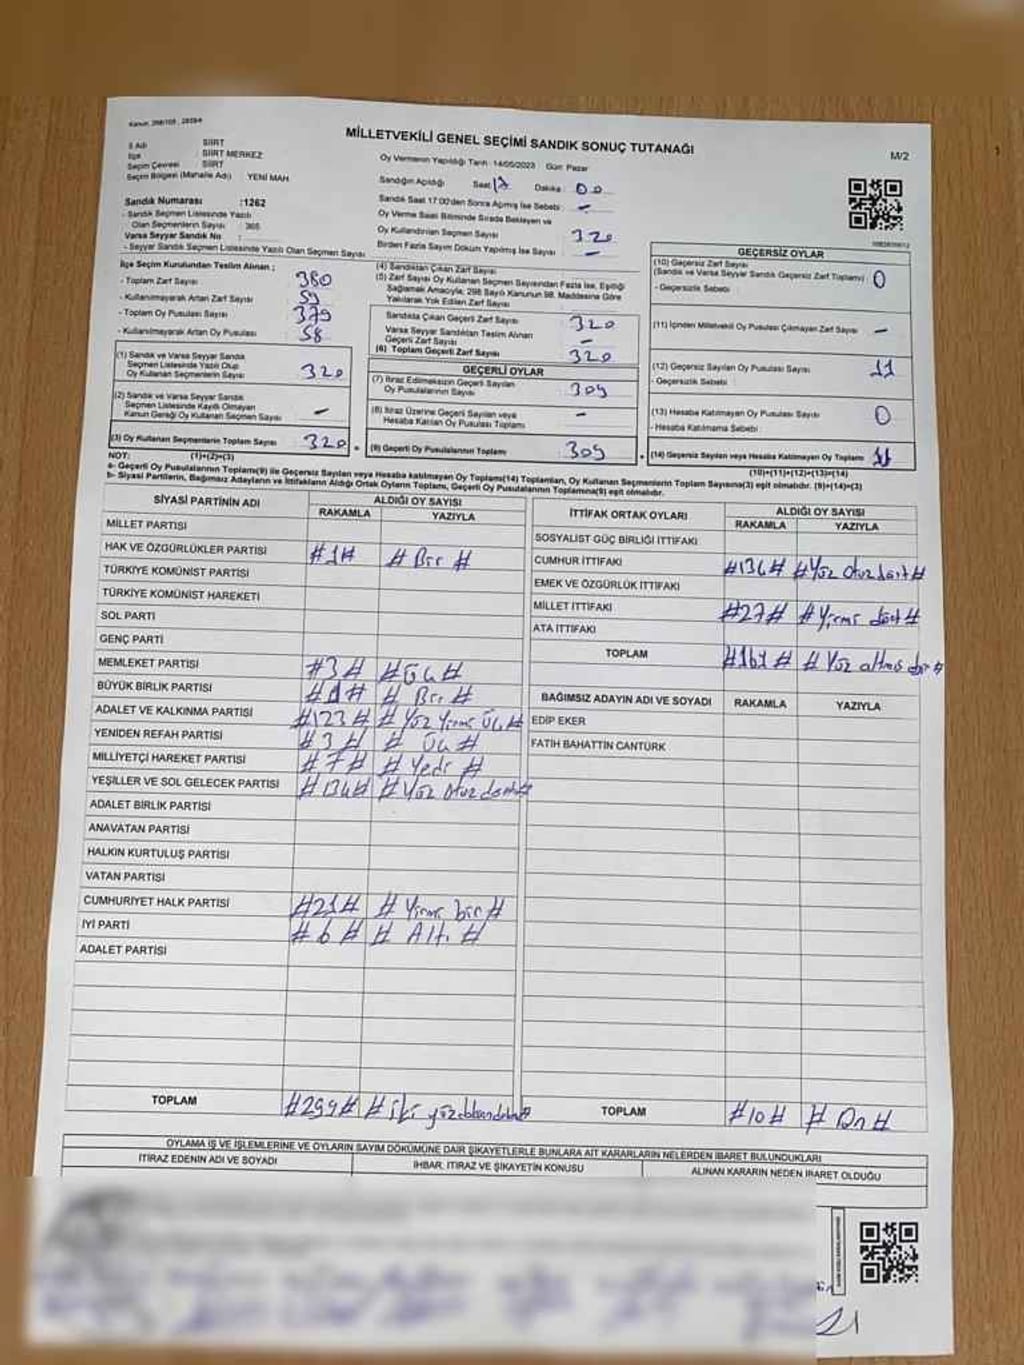 Kanun: 298/105 , 2839/4
MİLLETVEKİLİ GENEL SEÇİMİ SANDIK SONUÇ TUTANAĞI
M/2
İl Adı SİİRT
İlçe SİİRT MERKEZ
Seçim Çevresi SİİRT
Seçim Bölgesi (Mahalle Adı) YENİ MAH.
Sandık Numarası :1262
- Sandık Seçmen Listesinde Yazılı
Olan Seçmenlerin Sayısı : 365
Varsa Seyyar Sandık No :
- Seyyar Sandık Seçmen Listesinde Yazılı Olan Seçmen Sayısı
Oy Vermenin Yapıldığı Tarih :14/05/2023 Gün: Pazar
Sandığın Açıldığı Saat 17 Dakika : 00
Sandık Saat 17.00'den Sonra Açılmış İse Sebebi: -
Oy Verme Saati Bitiminde Sırada Bekleyen ve
Oy Kullandırılan Seçmen Sayısı 320
Birden Fazla Sayım Döküm Yapılmış İse Sayısı -
İlçe Seçim Kurulundan Teslim Alınan ;
- Toplam Zarf Sayısı 380
- Kullanılmayarak Artan Zarf Sayısı 59
- Toplam Oy Pusulası Sayısı 379
- Kullanılmayarak Artan Oy Pusulası 58
(1) Sandık ve Varsa Seyyar Sandık
Seçmen Listesinde Yazılı Olup
Oy Kullanan Seçmenlerin Sayısı 320
(2) Sandık ve Varsa Seyyar Sandık
Seçmen Listesinde Kayıtlı Olmayan
Kanun Gereği Oy Kullanan Seçmen Sayısı -
(3) Oy Kullanan Seçmenlerin Toplam Sayısı 320
(1)+(2)=(3)
(4) Sandıktan Çıkan Zarf Sayısı
(5) Zarf Sayısı Oy Kullanan Seçmen Sayısından Fazla İse, Eşitliği
Sağlamak Amacıyla, 298 Sayılı Kanunun 98. Maddesine Göre
Yakılarak Yok Edilen Zarf Sayısı
Sandıkta Çıkan Geçerli Zarf Sayısı 320
Varsa Seyyar Sandıktan Teslim Alınan
Geçerli Zarf Sayısı -
(6) Toplam Geçerli Zarf Sayısı 320
GEÇERLİ OYLAR
(7) İtiraz Edilmeksizin Geçerli Sayılan
Oy Pusulalarının Sayısı 309
(8) İtiraz Üzerine Geçerli Sayılan veya
Hesaba Katılan Oy Pusulası Toplamı -
(9) Geçerli Oy Pusulalarının Toplamı 309
GEÇERSİZ OYLAR
(10) Geçersiz Zarf Sayısı
(Sandık ve Varsa Seyyar Sandık Geçersiz Zarf Toplamı) 0
- Geçersizlik Sebebi
(11) İçinden Milletvekili Oy Pusulası Çıkmayan Zarf Sayısı -
(12) Geçersiz Sayılan Oy Pusulası Sayısı 11
- Geçersizlik Sebebi
(13) Hesaba Katılmayan Oy Pusulası Sayısı 0
- Hesaba Katılmama Sebebi
(14) Geçersiz Sayılan veya Hesaba Katılmayan Oy Toplamı 11
(10)+(11)+(12)+(13)=(14)
NOT:
a- Geçerli Oy Pusulalarının Toplamı(9) ile Geçersiz Sayılan veya Hesaba katılmayan Oy Toplamı(14) Toplamları, Oy Kullanan Seçmenlerin Toplam Sayısına(3) eşit olmalıdır. (9)+(14)=(3)
b- Siyasi Partilerin, Bağımsız Adayların ve İttifakların Aldığı Ortak Oyların Toplamı, Geçerli Oy Pusulalarının Toplamına(9) eşit olmalıdır.
SİYASİ PARTİNİN ADI ALDIĞI OY SAYISI
RAKAMLA YAZIYLA
MİLLET PARTİSİ
HAK VE ÖZGÜRLÜKLER PARTİSİ #1# # Bir #
TÜRKİYE KOMÜNİST PARTİSİ
TÜRKİYE KOMÜNİST HAREKETİ
SOL PARTİ
GENÇ PARTİ
MEMLEKET PARTİSİ #3# #Üç#
BÜYÜK BİRLİK PARTİSİ #1# # Bir #
ADALET VE KALKINMA PARTİSİ #123# # Yüz Yirmi Üç #
YENİDEN REFAH PARTİSİ #3# # Üç #
MİLLİYETÇİ HAREKET PARTİSİ #7# # Yedi #
YEŞİLLER VE SOL GELECEK PARTİSİ #134# # Yüz otuz dört #
ADALET BİRLİK PARTİSİ
ANAVATAN PARTİSİ
HALKIN KURTULUŞ PARTİSİ
VATAN PARTİSİ
CUMHURİYET HALK PARTİSİ #21# # Yirmi bir #
İYİ PARTİ #6# # Altı #
ADALET PARTİSİ
TOPLAM #299# # iki yüz
İTTİFAK ORTAK OYLARI ALDIĞI OY SAYISI
RAKAMLA YAZIYLA
SOSYALİST GÜÇ BİRLİĞİ İTTİFAKI
CUMHUR İTTİFAKI #134# # Yüz otuz dört #
EMEK VE ÖZGÜRLÜK İTTİFAKI
MİLLET İTTİFAKI #27# # Yirmi dört #
ATA İTTİFAKI
TOPLAM #161# # Yüz altmış bir #
BAĞIMSIZ ADAYIN ADI VE SOYADI RAKAMLA YAZIYLA
EDİP EKER
FATİH BAHATTİN CANTÜRK
TOPLAM #10# # On #
OYLAMA İŞ VE İŞLEMLERİNE VE OYLARIN SAYIM DÖKÜMÜNE DAİR ŞİKAYETLERLE BUNLARA AİT KARARLARIN NELERDEN İBARET BULUNDUKLARI
İTİRAZ EDENİN ADI VE SOYADI İHBAR, İTİRAZ VE ŞİKAYETİN KONUSU ALINAN KARARIN NEDEN İBARET OLDUĞU